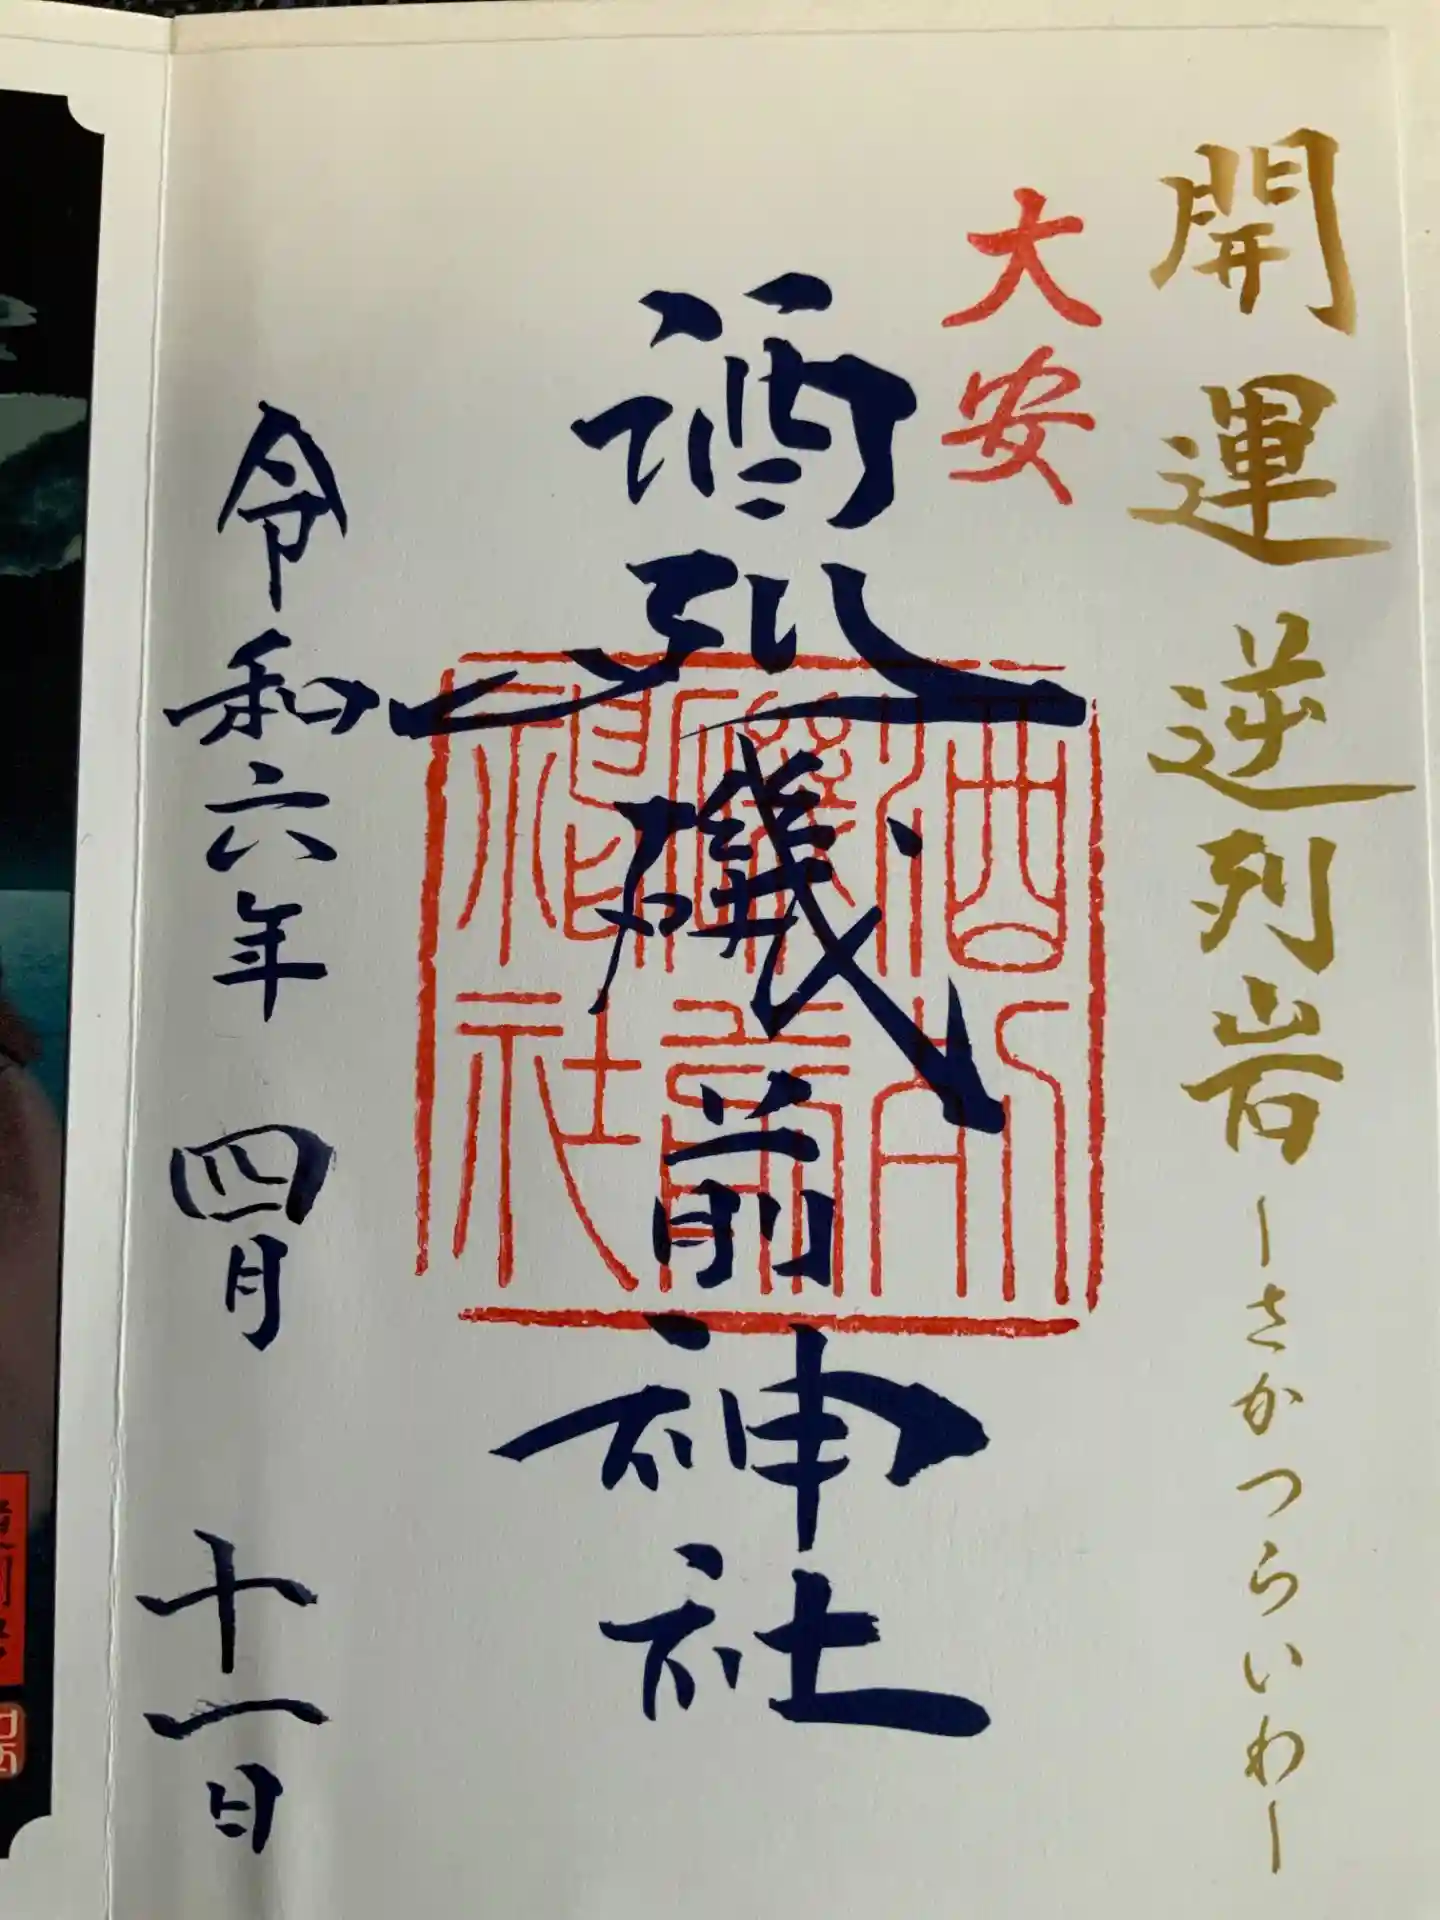 開運 逆列岩 ーさかつらいわー
大安
酒列磯前神社
酒列
磯前
神社
令和六年 四月 十一日